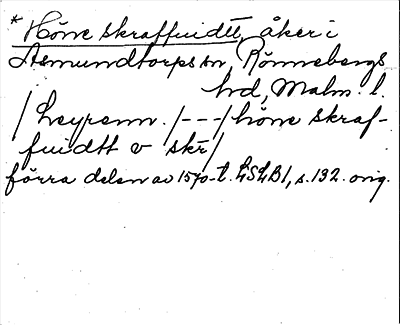 * Höne skraffuidtt, åker i
Asmundtorps sn, Rönnebergs
hd, Malm. l.
/ Leyrenn. /---/ höne skraf-
fuidtt v skr/
förra delen av 1570-t. LSLB1, s. 132. orig.